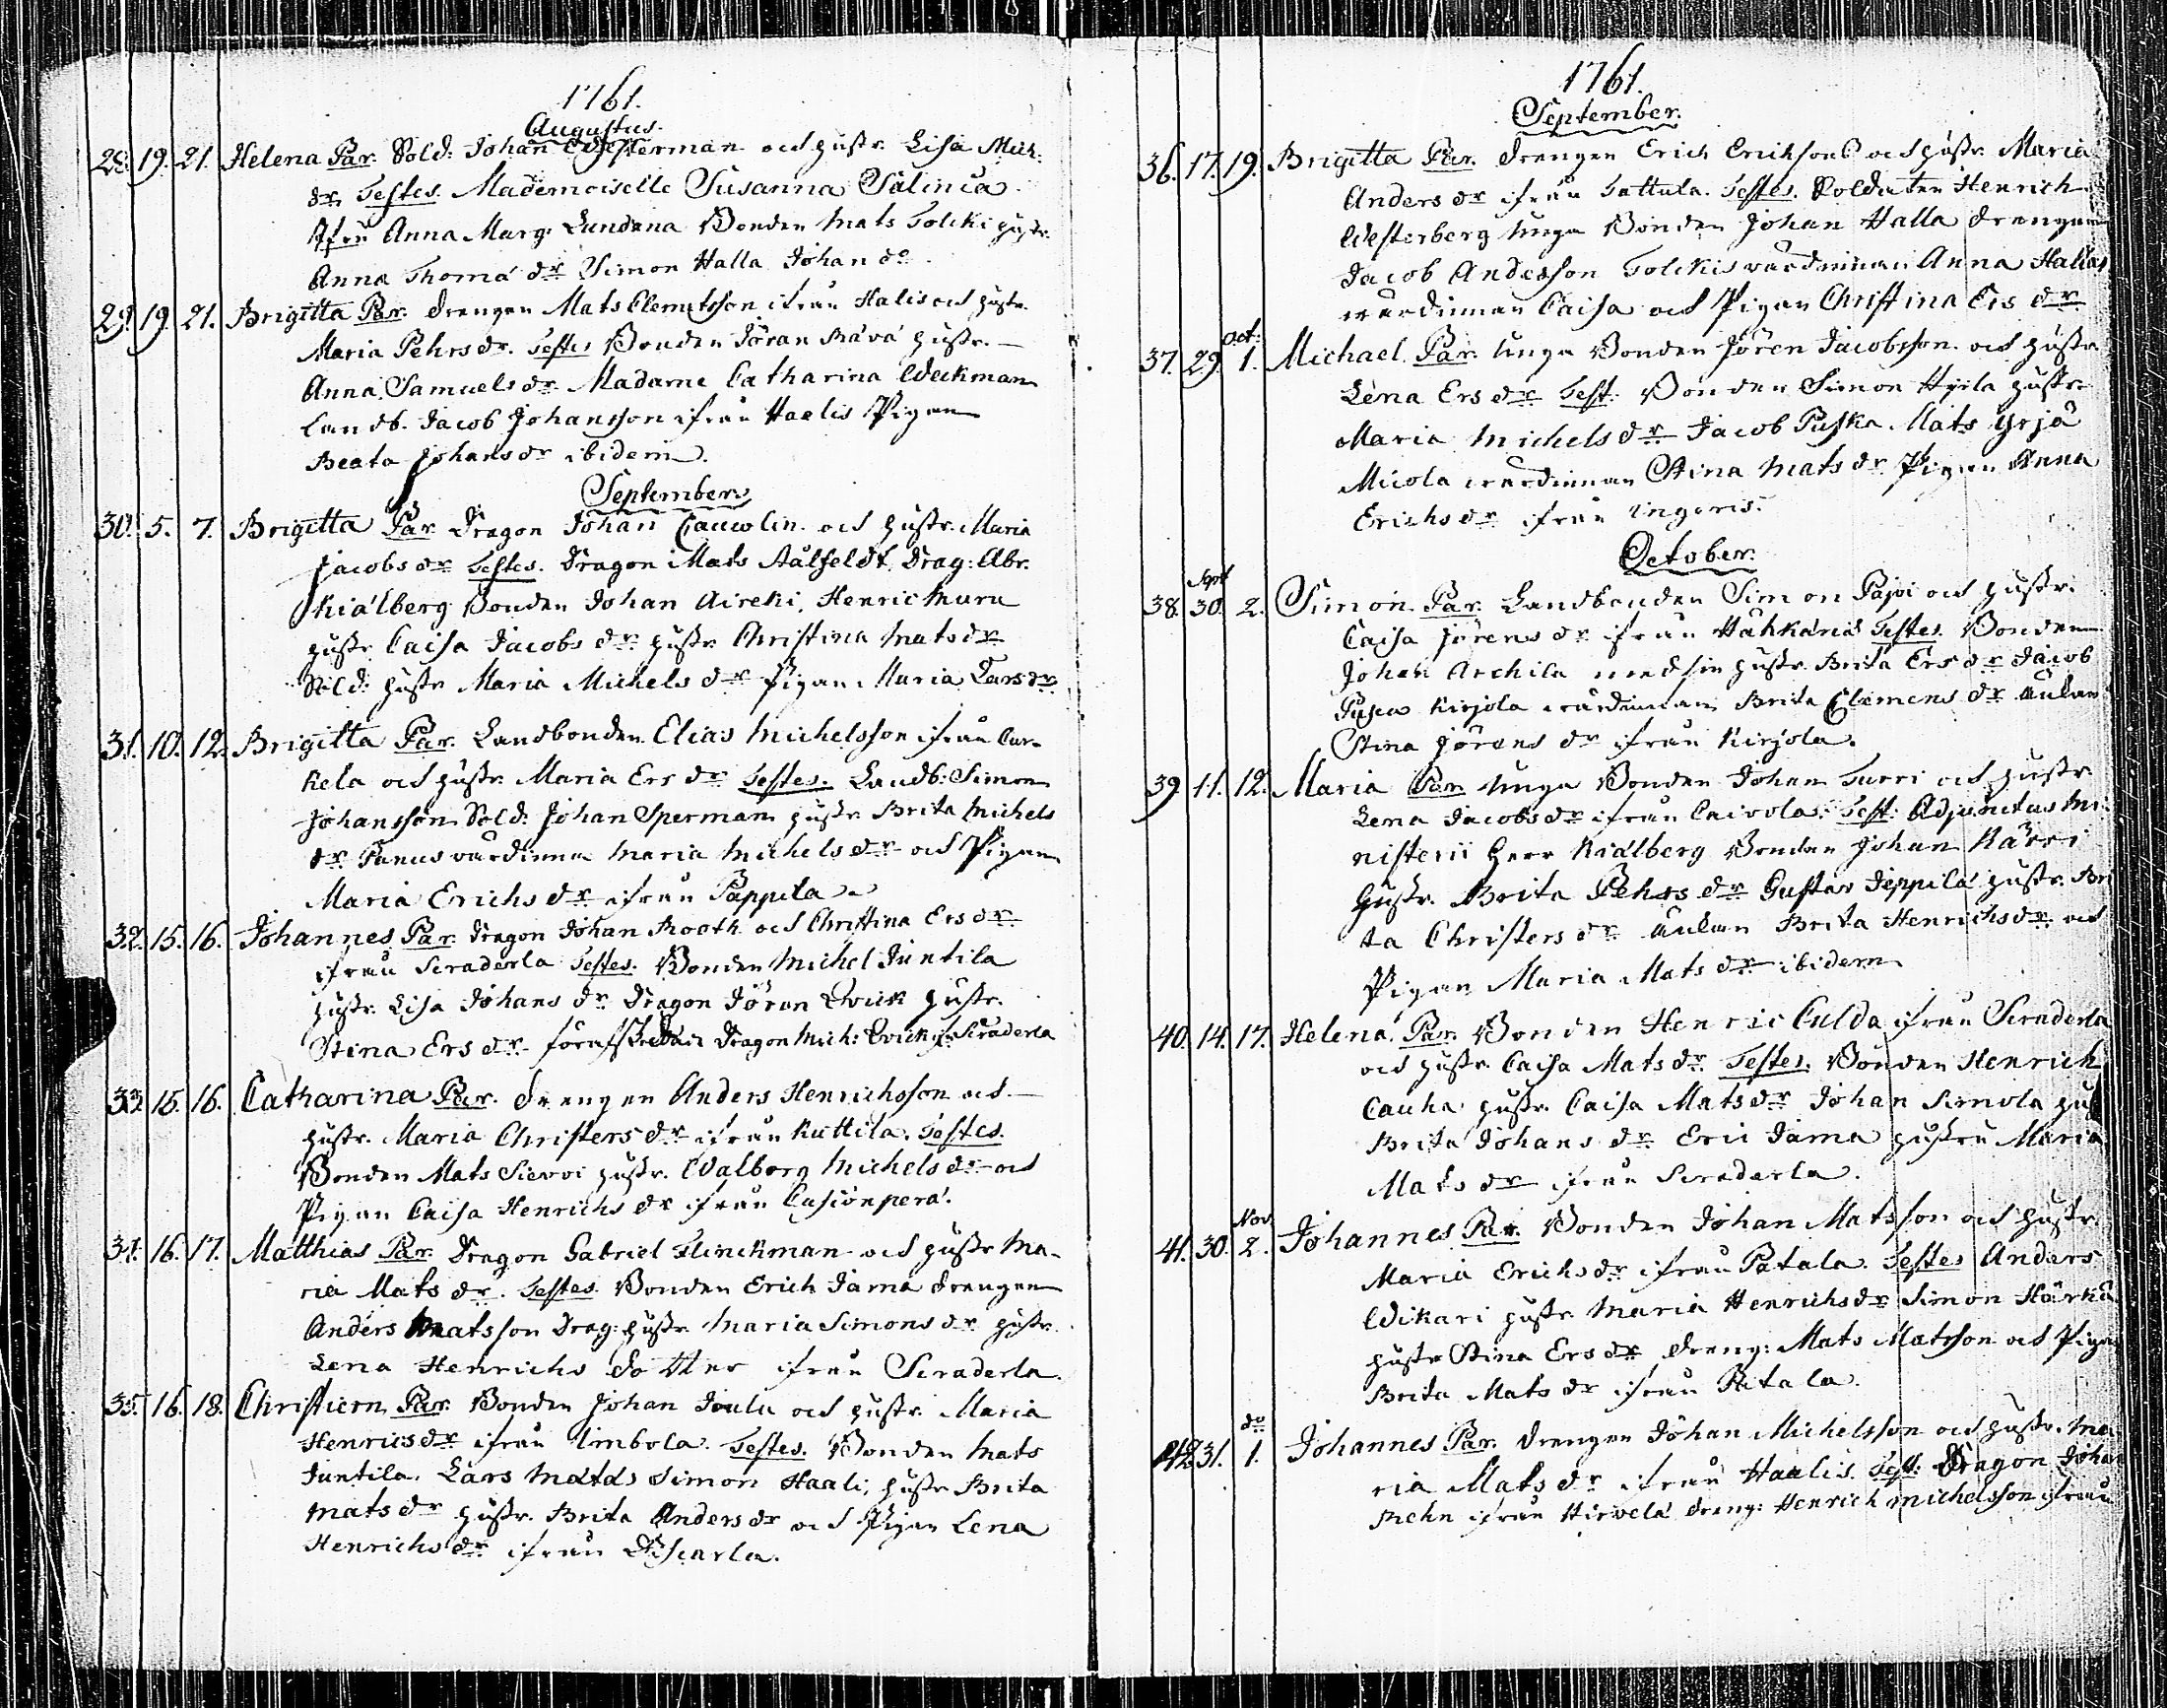 1761.
Augustus.
28. 19. 21. Helena Par. Sold: Johan Westerman och hustr. Lisa Mich:
dr. Testes. Mademoiselle Susanna Salinia
Jfru Anna Marg. Lundena Bonden Mats Tolcki hustr.
Anna Thomæ dr Simon Halla Johan do
29. 19. 21. Brigitta Par. drengen Mats Clemetsson ifrån Halis och hustr.
Maria Pehrs dr. Testes Bonden Jöran Rävä hustr.
Anna Samuels dr Madame Catharina Weckman
Landb. Jacob Johansson ifrån Haalis Pigan
Beata Johans dr ibidem.
September.
30. 5. 7. Brigitta Par. Dragon Johan Cauwlin och hustr. Maria
Jacobs dr Testes. Dragon Mats Aålfeldt Drag: Abr.
Kiälberg Bonden Johan Aireki, Henric Muru
hustr. Caisa Jacobs dr hustr Christina Mats dr
Sold: hustr Maria Michels dr Pigan Maria Lars dr
31. 10. 12. Brigitta Par. Landbonden Elias Michelsson ifrån Car-
kela och hustr. Maria Ers dr Testes. Landb: Simon
Johansson Sold: Johan Sperman hustr Brita Michels
dr Panus värdinna Maria Michels dr och Pigan
Maria Erichs dr ifrån Pappila
32. 15. 16. Johannes Par. Dragon Johan Rooth och Christina Ers dr
ifrån Seraderla Testes. Bonden Michel Juntila
hustr. Lisa Johans dr Dragon Jöran Qvick hustr.
Stina Ers dr Dragon Mich: Qvick ifr Seraderla
33. 15. 16. Catharina Par. drengen Anders Henrichsson och
hustr. Maria Christers dr ifrån Kuttila. Testes.
Bonden Mats Sieroi hustr. Walborg Michels dr och
Pigan Caisa Henrichs dr ifrån Casionperä.
34. 16. 17. Matthias Par. Dragon Gabriel Flinckman och hustr Ma-
ria Mats dr. Testes. Bonden Erich Jama drengen
Anders Matsson Drag: hustr Maria Simons dr hustr.
Lena Henrichs dotter ifrån Seraderla.
35. 16. 18. Christiern Par. Bonden Johan Joulu och hustr. Maria
Henrics dr ifrån Limbola. Testes. Bonden Mats
Juntila. Lars Matas Simon Haali, hustr Brita
Mats dr hustr. Brita Anders dr och Pigan Lena
Henrichs dr ifrån
1761.
September.
36. 17. 19. Brigitta Par. drengen Erich Erichsons och hustr. Maria
Anders dr ifrån Tattula. Testes. Soldaten Henrich
Westerberg Unga Bonden Johan Halla drengen
Jacob Andersson Tolckis värdinnan Anna Hallas
värdinnan Caisa och Pigan Christina Ers dr
Oct:
37. 29. 1. Michael. Par. Unga Bonden Jören Jacobsson och hustr
Lena Ers dr Test. Bonden Simon Hyila hustr
Maria Michels dr Jacob Puska. Mats Yrjä
Micola värdinnan Stina Mats dr Pigan Anna
Erichs dr ifrån Ingeris.
October.
Sept
38. 30. 2. Simon. Par. Landbonden Simon Pajoi och hustr.
Caisa Jörens dr ifrån Hähkänä Testes. Bonden
Johan Archila med sin hustr Brita Ers dr Jacob
Pusca Kirjola värdinnan Brita Clemens dr Änkan
Stina Jörens dr ifrån Kirjola.
39. 11. 12. Maria Par. Unga Bonden Johan Turri och hustr
Lena Jacobs dr ifrån Caivola. Test. Adjunctus Mi-
nisterii Herr Kiälberg Bonden Johan Kärri
Hustr. Brita Pehrs dr Gustav Jeppilä hustr. Bri
ta Christers dr Änkan Brita Henrichs dr och
Pigan Maria Mats dr ibidem
40. 14. 17. Helena. Par. Bonden Henric Culda ifrån Seraderla
och hustr. Caisa Mats dr. Testes. Bonden Henrich
Cauha hustr. Caisa Mats dr Johan Simola hus
Brita Johans dr Eric Jama hustru Maria
Mats dr ifrån Seraderla.
Nov.
41. 30. 2. Johannes Par. Bonden Johan Matsson och hustr.
Maria Erichs dr ifrån Patala. Testes Anders
Wikari hustr Maria Henrichs dr Simon Härkä
hustr Stina Ers dr dreng: Mats Matsson och Pigan
Brita Mats dr ifrån Patala.
do
42. 31. 1. Johannes Par. drengen Johan Michelsson och hustr. Ma
ria Mats dr ifrån Haalis. Test: Dragon Johan
Rehn ifrån Hirvelä dreng: Henrich Michelsson ifrån